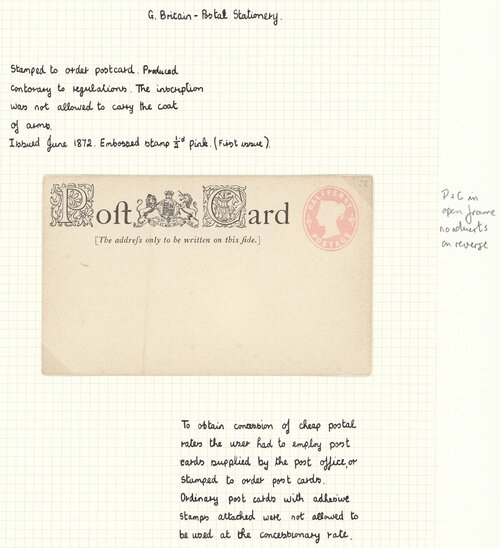 G. Britain - Postal Stationery.
Stamped to order postcard. Produced
contorary to regulations. The inscription
was not allowed to carry the coat
of arms.
Issued June 1872. Embossed stamp ½d pink. (First issue).
58
Post Card
[The addreſs only to be written on this ſide.]
HALFPENNY
POSTAGE
P & C in
open frame
no adverts
on reverse
To obtain concession of cheap postal
rates the user had to employ post
cards supplied by the post office, or
stamped to order post cards.
Ordinary post cards with adhesive
stamps attached were not allowed to
be used at the concessionary rate.